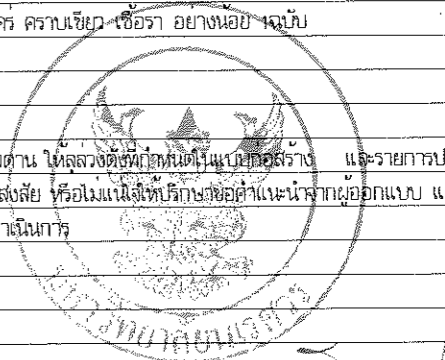 คร่ คราบเขียว เชื้อรา อย่างน้อย 1ฉบับ
ด้าน ให้ลุล่วงดังที่กำหนดในแบบก่อสร้าง และรายการป
สงสัย หรือไม่แน่ใจให้ปรึกษาขอคำแนะนำจากผู้ออกแบบ แ
าเนินการ
มหาวิทยาลัยนเรศวร